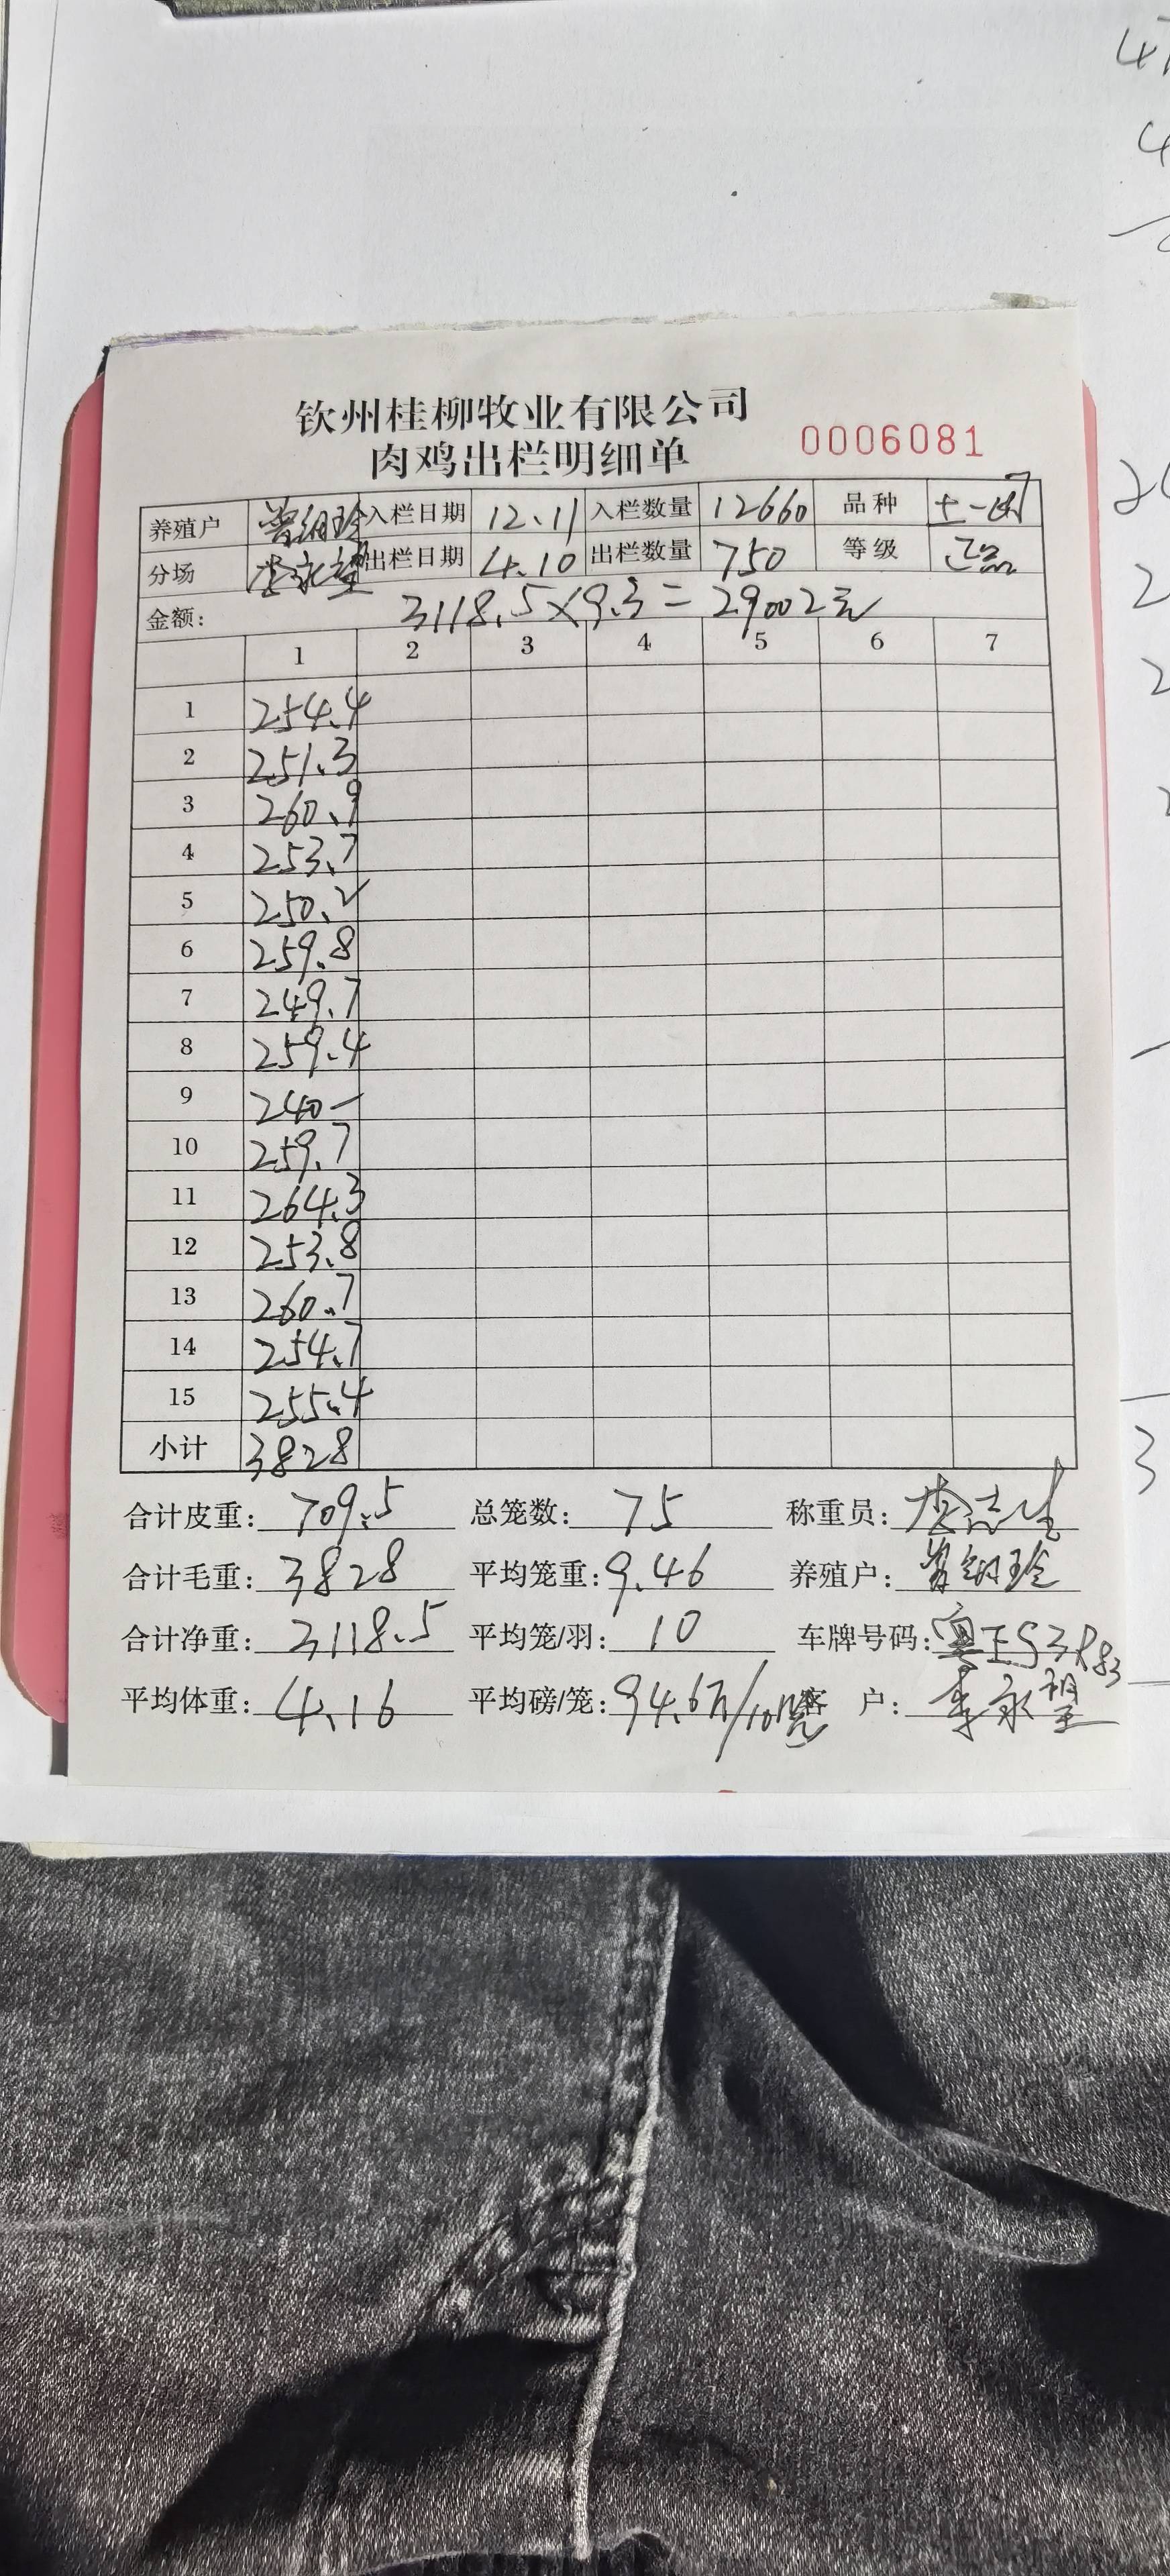 钦州桂柳牧业有限公司
肉鸡出栏明细单 0006081
养殖户 入栏日期 12.11 入栏数量 12660 品种 土一
分场 李永望 出栏日期 4.10 出栏数量 750 等级 正品
金额: 3118.5×9.3=29002元
1 2 3 4 5 6 7
1 254.4
2 251.3
3 260.9
4 253.7
5 250.2
6 259.8
7 249.7
8 259.4
9 240-
10 259.7
11 264.3
12 253.8
13 260.7
14 254.7
15 255.4
小计 3828
合计皮重: 709.5 总笼数: 75 称重员:
合计毛重: 3828 平均笼重: 9.46 养殖户:
合计净重: 3118.5 平均笼/羽: 10 车牌号码: 粤
平均体重: 4.16 平均磅/笼: 94.6 客 户: 李永望